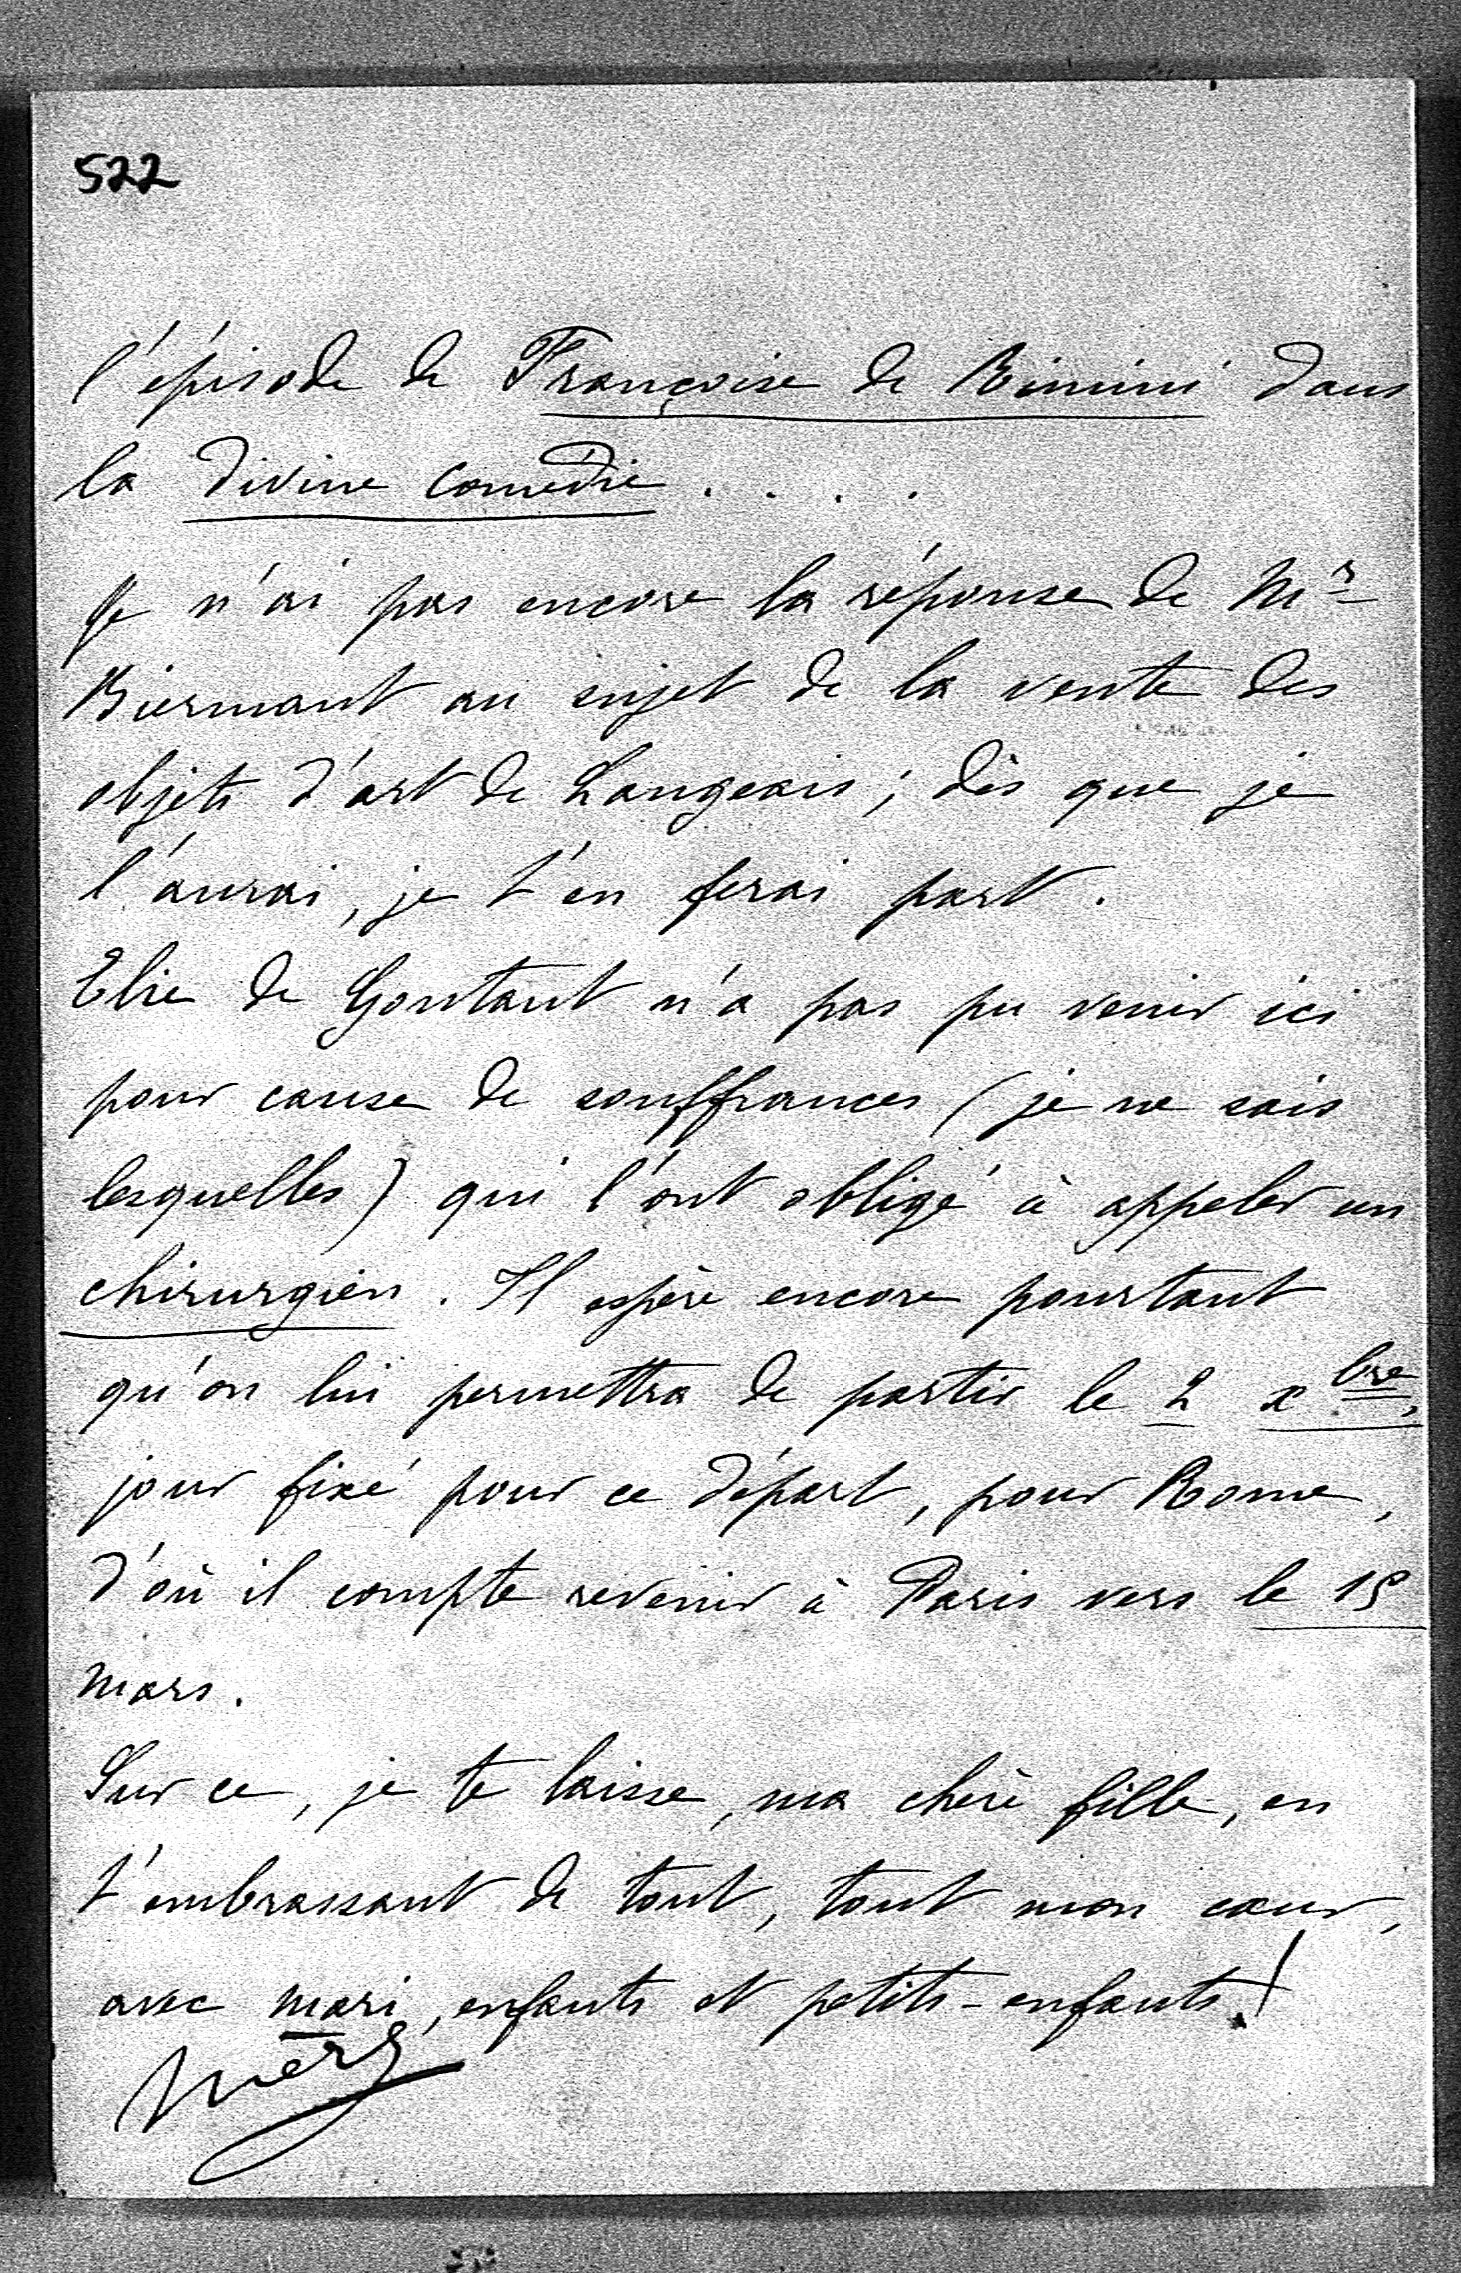 522
l'épisode de Françoise de Rimini dans
la divine comédie . . . .
Je n'ai pas encore la réponse de Mr
Biermant au sujet de la vente des
objets d'art de Langeais ; dès que je
l'aurai, je t'en ferai part.
Elie de Gontaut n'a pas pu venir ici
pour cause de souffrances (je ne sais
lesquelles) qui l'ont obligé à appeler un
chirurgien. Il espère encore pourtant
qu'on lui permettra de partir le 2 xbre,
jour fixé pour ce départ, pour Rome,
d'où il compte revenir à Paris vers le 15
mars.
Sur ce, je te laisse, ma chère fille, en
t'embrassant de tout, tout mon cœur,
avec mari, enfants et petits-enfants !
Mère